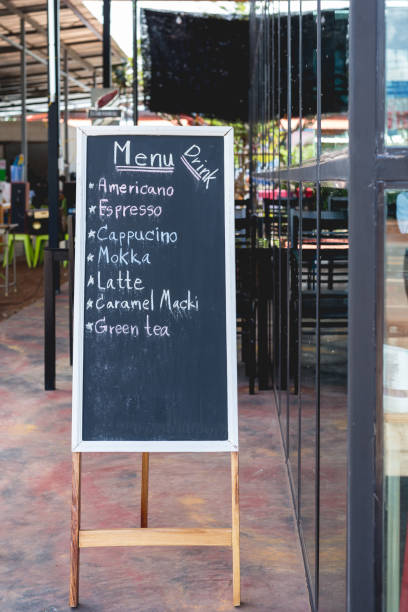 Menu Drink
* Americano
* Espresso
* Cappucino
* Mokka
* Latte
* Caramel Macki
* Green tea